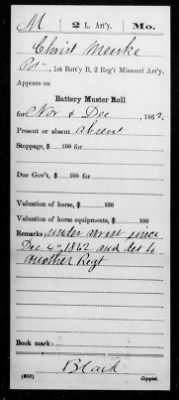 M | 2 L. Art'y. | Mo.
Christ Menke
Pvt., 1st Batt'y B, 2 Reg't Missouri Art'y.
Appears on
Battery Muster Roll
for Nov & Dec, 1862.
Present or absent absent
Stoppage, $ 100 for
Due Gov't, $ 100 for
Valuation of horse, $ 100
Valuation of horse equipments, $ 100
Remarks: under arrest since
Dec 4, 1862 and det to
another Regt
Book mark:
Black
(858) Copyist.